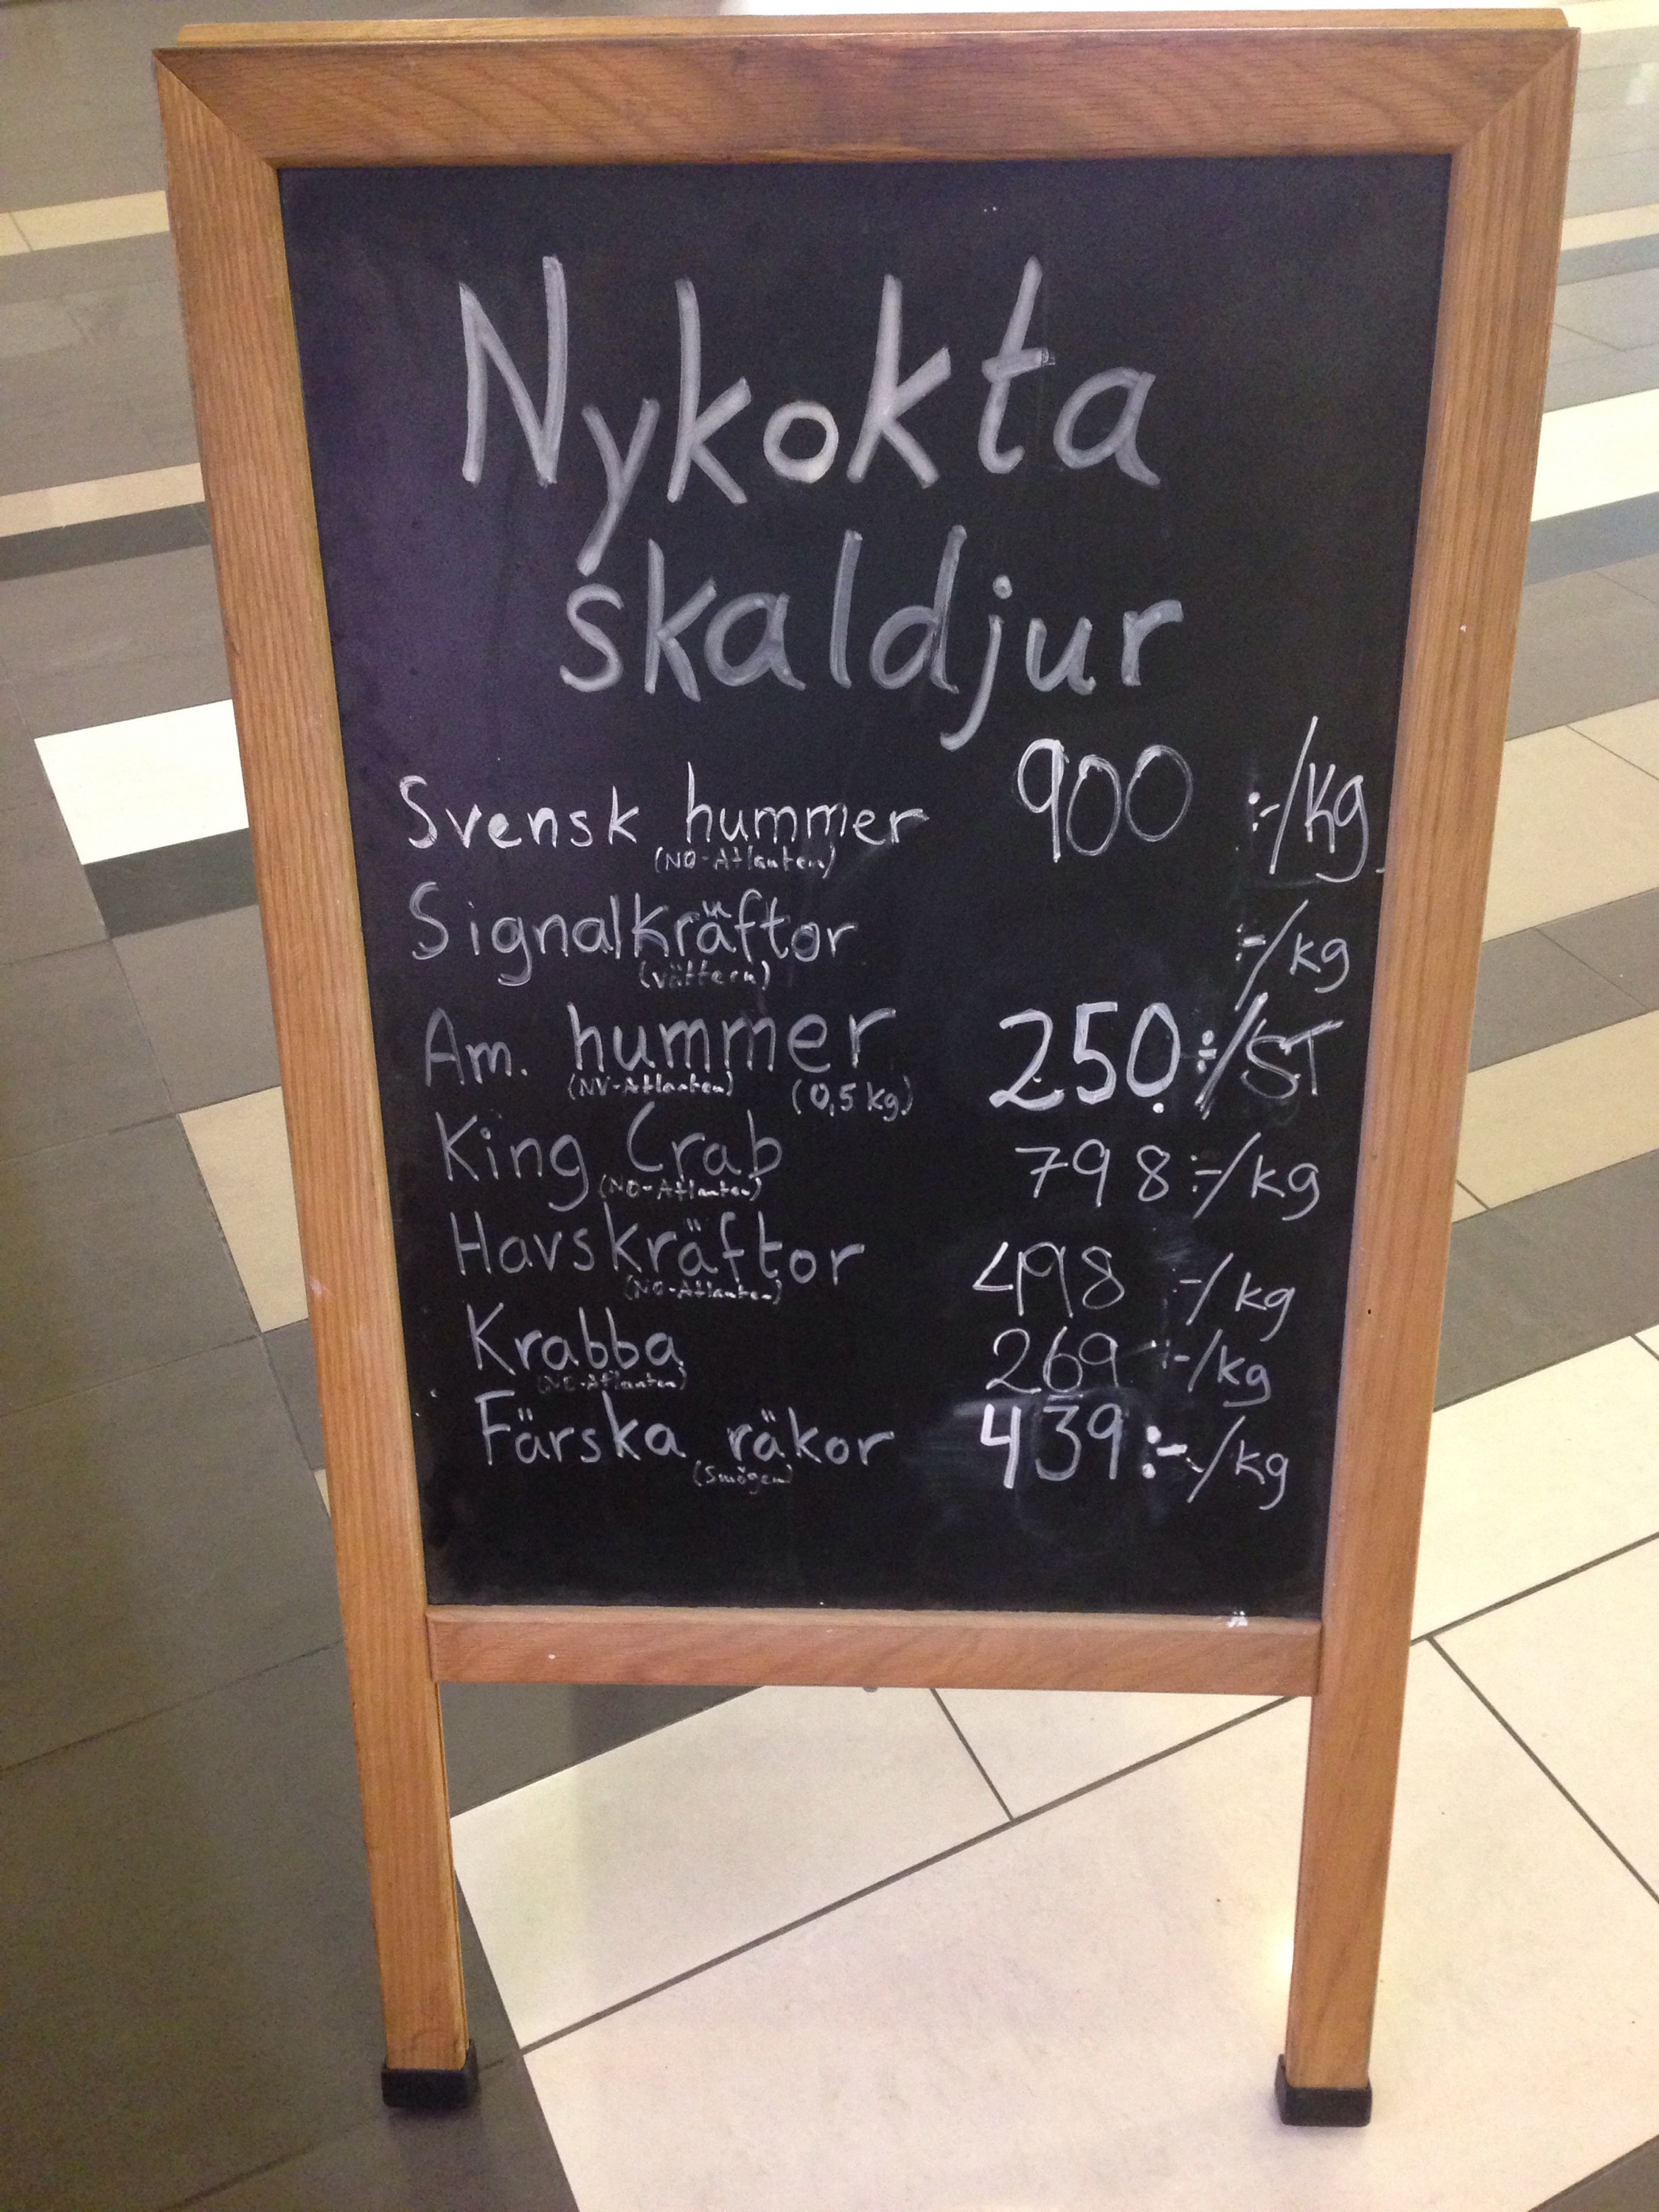 Nykokta
skaldjur
Svensk hummer 900 :-/kg
(NO-Atlanten)
Signalkräftor :-/kg
(vättern)
Am. hummer 250:-/ST
(NV-Atlanten) (0,5 kg)
King Crab 798:-/kg
(NO-Atlanten)
Havskräftor 498 -/kg
(NO-Atlanten)
Krabba 269 :-/kg
(NO-Atlanten)
Färska räkor 439:-/kg
(Smögen)